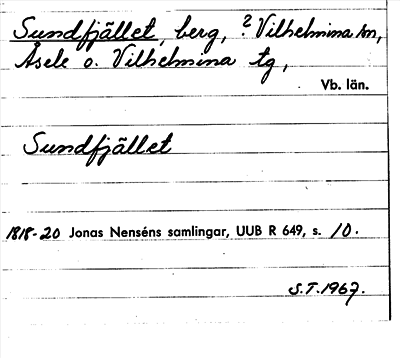 Sundfjället, berg, ? Vilhelmina sn,
Åsele o. Vilhelmina tg,
Vb. län.
Sundfjället
1818-20 Jonas Nenséns samlingar, UUB R 649, s. 10.
S.T. 1967.